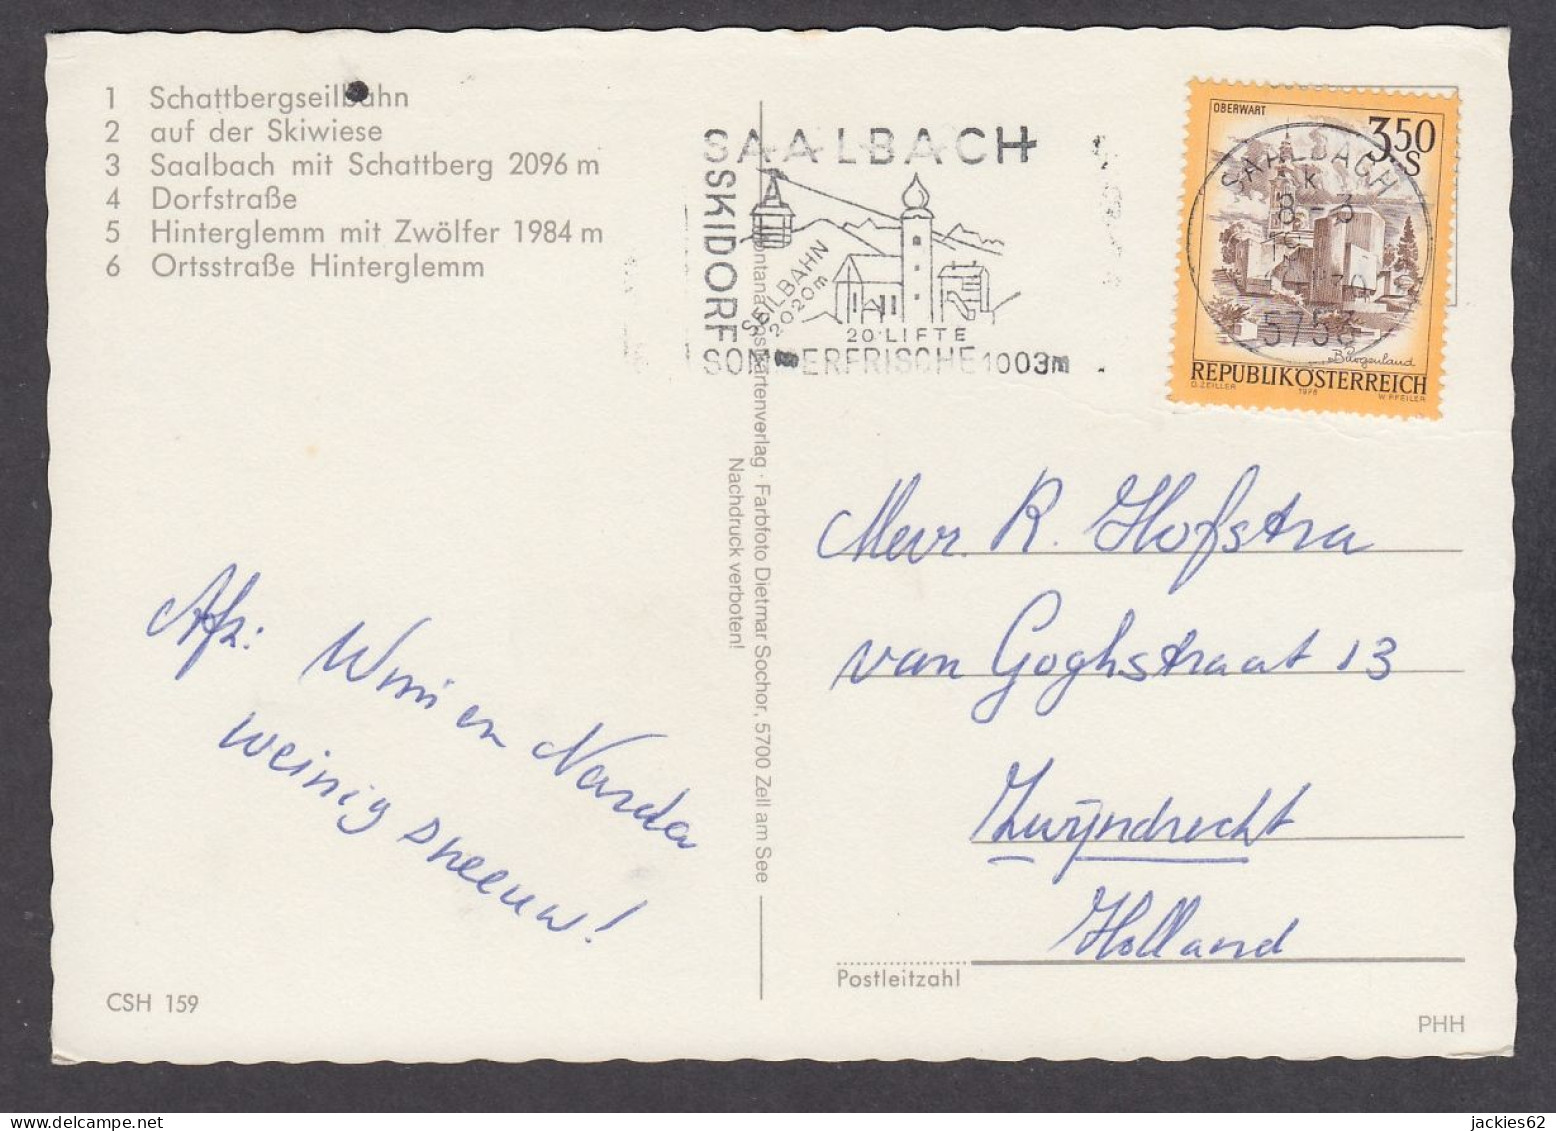 1 Schattbergseilbahn
2 auf der Skiwiese
3 Saalbach mit Schattberg 2096 m
4 Dorfstraße
5 Hinterglemm mit Zwölfer 1984 m
6 Ortsstraße Hinterglemm
SAALBACH
SKIDORF
SEILBAHN
2020m
20·LIFTE
SOMMERFRISCHE 1003m
OBERWART
3,50
S
SAALBACH
k
8-3
5753
Burgenland
REPUBLIK ÖSTERREICH
O. ZEILLER 1978 W. PFEILER
Montana Postkartenverlag · Farbfoto Dietmar Sochor, 5700 Zell am See
Nachdruck verboten!
Mevr. R. Hofstra
van Goghstraat 13
Zwijndrecht
Holland
Afz: Wim en Narda
weinig sneeuw!
Postleitzahl
CSH 159
PHH
jackies62